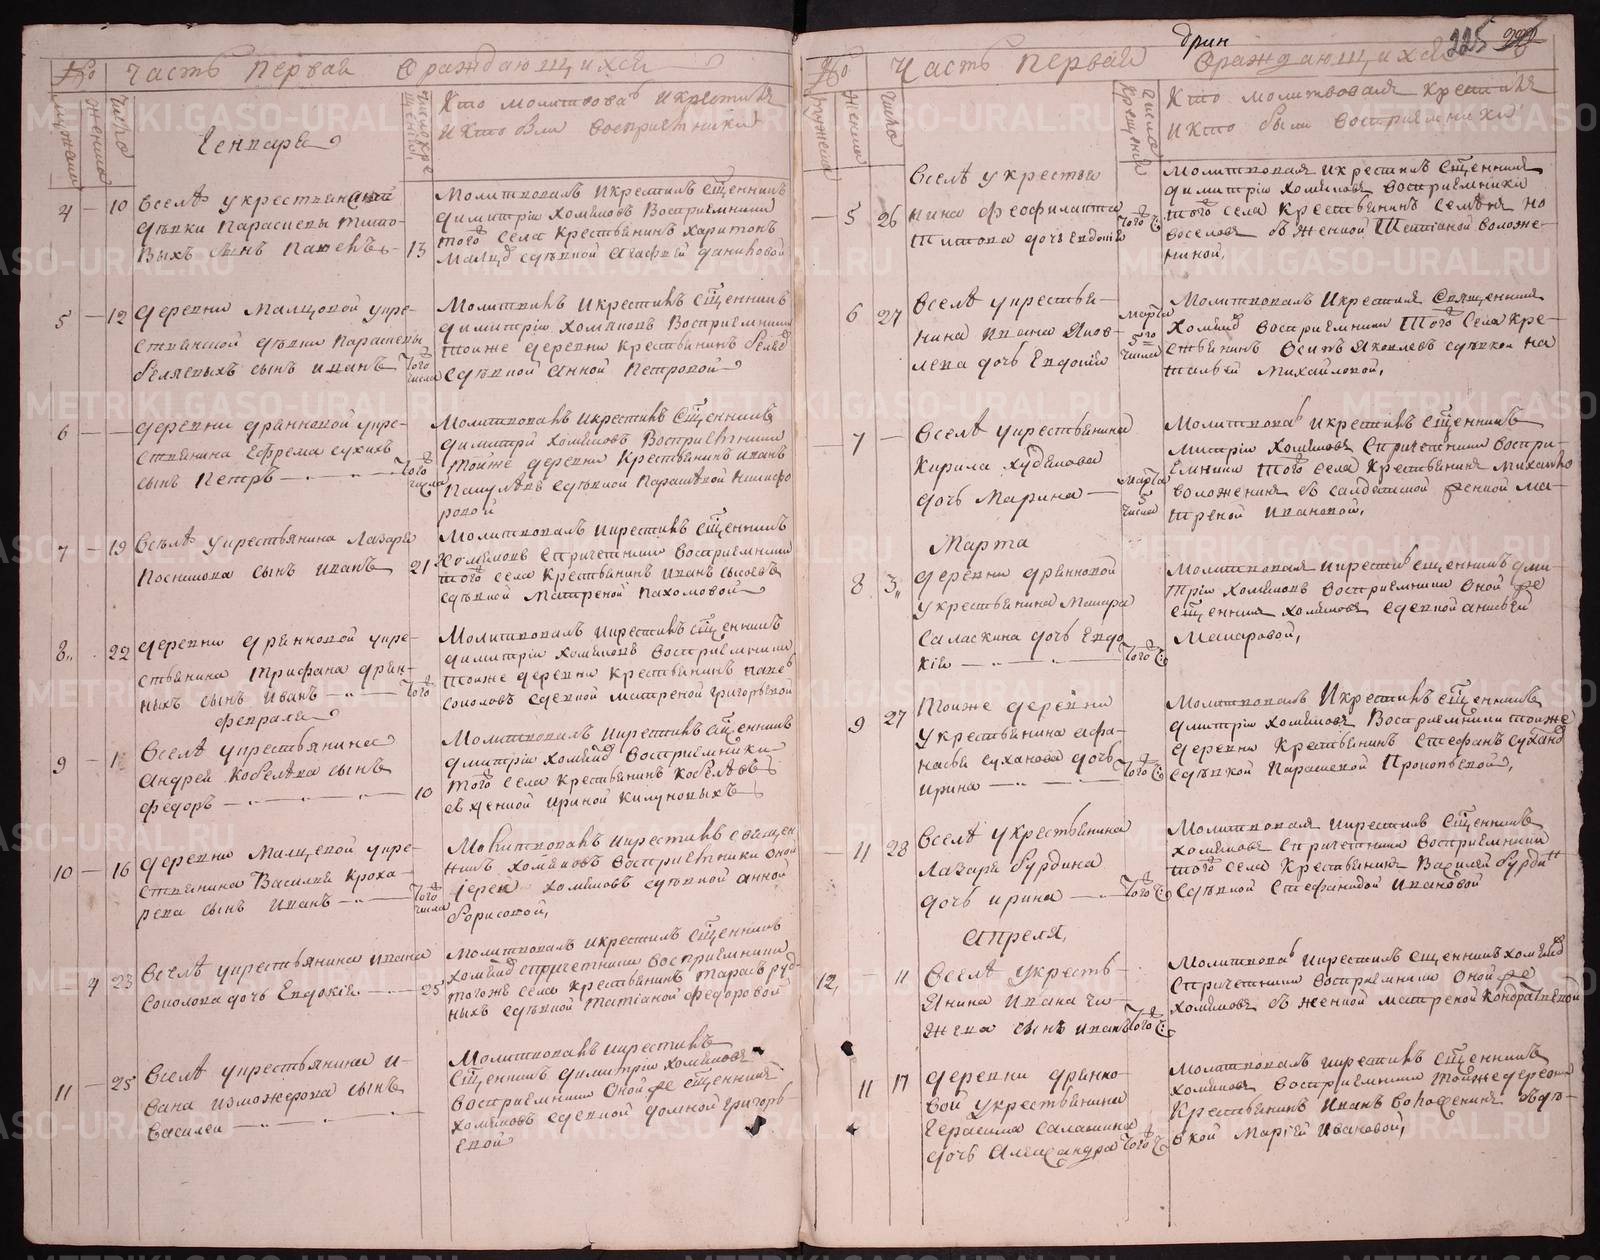 № Часть Первая О раждающихся
мужеска
женска
число
число крещенiя
Кто молитвовалъ и крестилъ
и кто были восприемники
Генваря
4 — 10 Вселѣ у крестьянской
дѣвки Парасковы Тито-
выхъ сынъ Павелъ — 13
Молитвовалъ и крестилъ Сщенникъ
Димитрiй Хомяковъ Восприемники
того села Крестьянинъ Харитонъ
Малцо съ дѣвкой Агафьей Даниловой
5 — 12 Деревни Малцовой у кре-
стьянской дѣвки Парасковьи
Беляевыхъ сынъ Иванъ того числа
Молитвовалъ и крестилъ Сщенникъ
Димитрiй Хомяковъ Восприемники
тоиже деревни крестьянинъ
съ дѣвкой Анной Петровой
6 — — деревни Дрянновой у кре-
стьянина Ефрема Сухихъ
сынъ Петръ — того числа
Молитвовалъ и крестилъ Сщенникъ
Димитрiй Хомяковъ Восприемники
тойже деревни Крестьянинъ Иванъ
съ дѣвкой Параскевой Никифо
ровой
7 — 19 Вселѣ у крестьянина Лазаря
сынъ Иванъ 21
Молитвовалъ и крестилъ Сщенникъ
Хомяковъ с причетники восприемники
того села Крестьянинъ Иванъ Сысоевъ
съ дѣвкой Матреной Пахомовой
8 22 деревни Дрянновой у кре-
стьянина Трифана Дрян-
ныхъ сынъ Иванъ — того
Молитвовалъ и крестилъ Сщенникъ
Димитрiй Хомяковъ восприемники
тоиже деревни Крестьянинъ Павелъ
Соколовъ с девкой Матреной Григорьевой
Февраля
9 — 1 Вселѣ у крестьянина
Андрея Кобелева сынъ
Федоръ — 10
Молитвовалъ и крестилъ Сщенникъ
Димитрiй Хомяковъ восприемники
того села Крестьянинъ Кобелевъ
съ женкой Ириной Килуновыхъ
10 — 16 деревни Малцевой у кре-
стьянина Василья Кроха-
рева сынъ Иванъ — того числа
Молитвовалъ и крестилъ священ
никъ Хомяковъ восприемники оной
iерей Хомяковъ съ дѣвкой Анной
Борисовой,
4 23 Вселѣ у крестьянина Ивана
Соколова дочь Евдокiя — 25
Молитвовалъ и крестилъ Сщенникъ
Хомяковъ с причетники восприемники
тогоже села Крестьянинъ Тарасъ Руд-
ныхъ съ дѣвкой Татiаной Федоровой
11 — 25 Вселѣ у крестьянина И-
вана Изможерова сынъ
Василей —
Молитвовалъ и крестилъ
Сщенникъ Димитрiй Хомяковъ
восприемники Оной же Сщенникъ
Хомяковъ с девкой Домной Григорь-
евой
дрин
225
№ Часть Первая О раждающихся
мужеска
женска
число
число крещенiя
Кто молитвовалъ и крестилъ
и кто были восприемники
5 26 Вселѣ у крестья
нина Феофилакта
Титова дочь Евдокiя того ч.
Молитвовалъ и крестилъ Сщенникъ
Димитрiй Хомяковъ восприемники
того села Крестьянинъ Семенъ Но
воселовъ съ женкой Татiаной Воложе-
ниной,
6 27 Вселѣ у крестья-
нина Ивана Яков-
лева дочь Евдокiя марта 5го числа
Молитвовалъ и крестилъ Священникъ
Хомяковъ восприемники того села Кре-
стьянинъ Осипъ Яковлевъ съ дѣвкой На
тальей Михайловой,
7 — Вселѣ у крестьянина
Кирила Худякова
дочь Марина — марта 5 числа
Молитвовалъ и крестилъ Сщенникъ
Митрiй Хомяковъ с причетники воспри-
емники того села Крестьянинъ Михайло
Воложенинъ съ салдатской женкой Ма-
треной Ивановой,
Марта
8 3 деревни Дрянновой
у крестьянина Макара
Саласкина дочь Евдо
кiя — того ч.
Молитвовалъ и крестилъ сщенникъ Дми-
трiй Хомяковъ восприемники Оной же
Сщенникъ Хомяковъ с девкой Анисьей
Макаровой,
9 27 Тоиже деревни
у крестьянина Афа-
насья Суханова дочь
Ирина — того ч.
Молитвовалъ и крестилъ Сщенникъ
Дмитрiй Хомяковъ Восприемники тоиже
деревни Крестьянинъ Стефанъ Сухано
съ дѣвкой Параскевой Прокопьевой,
11 28 Вселѣ у крестьянина
Лазаря Бурдина
дочь Ирина — того ч.
Молитвовалъ и крестилъ Сщенникъ
Хомяковъ с причетники восприемники
того села Крестьянинъ Василей Бурдинъ
съ дѣвкой Стефанидой Ивановой
Апреля,
12, 11 Вселѣ у кресть-
янина Ивана Чи-
жева сынъ Иванъ того ч.
Молитвовалъ и крестилъ Сщенникъ Хомяков
с причетники восприемники Оной же
Хомяковъ съ женкой Матреной Кондратьевой
11 17 деревни Дрянно-
вой у крестьянина
Герасима Саласкина
дочь Александра того ч.
Молитвовалъ и крестилъ Сщенникъ
Хомяковъ восприемники тойже деревни
Крестьянинъ Иванъ Воложенинъ съ дѣ-
вкой Марiей Ивановой,